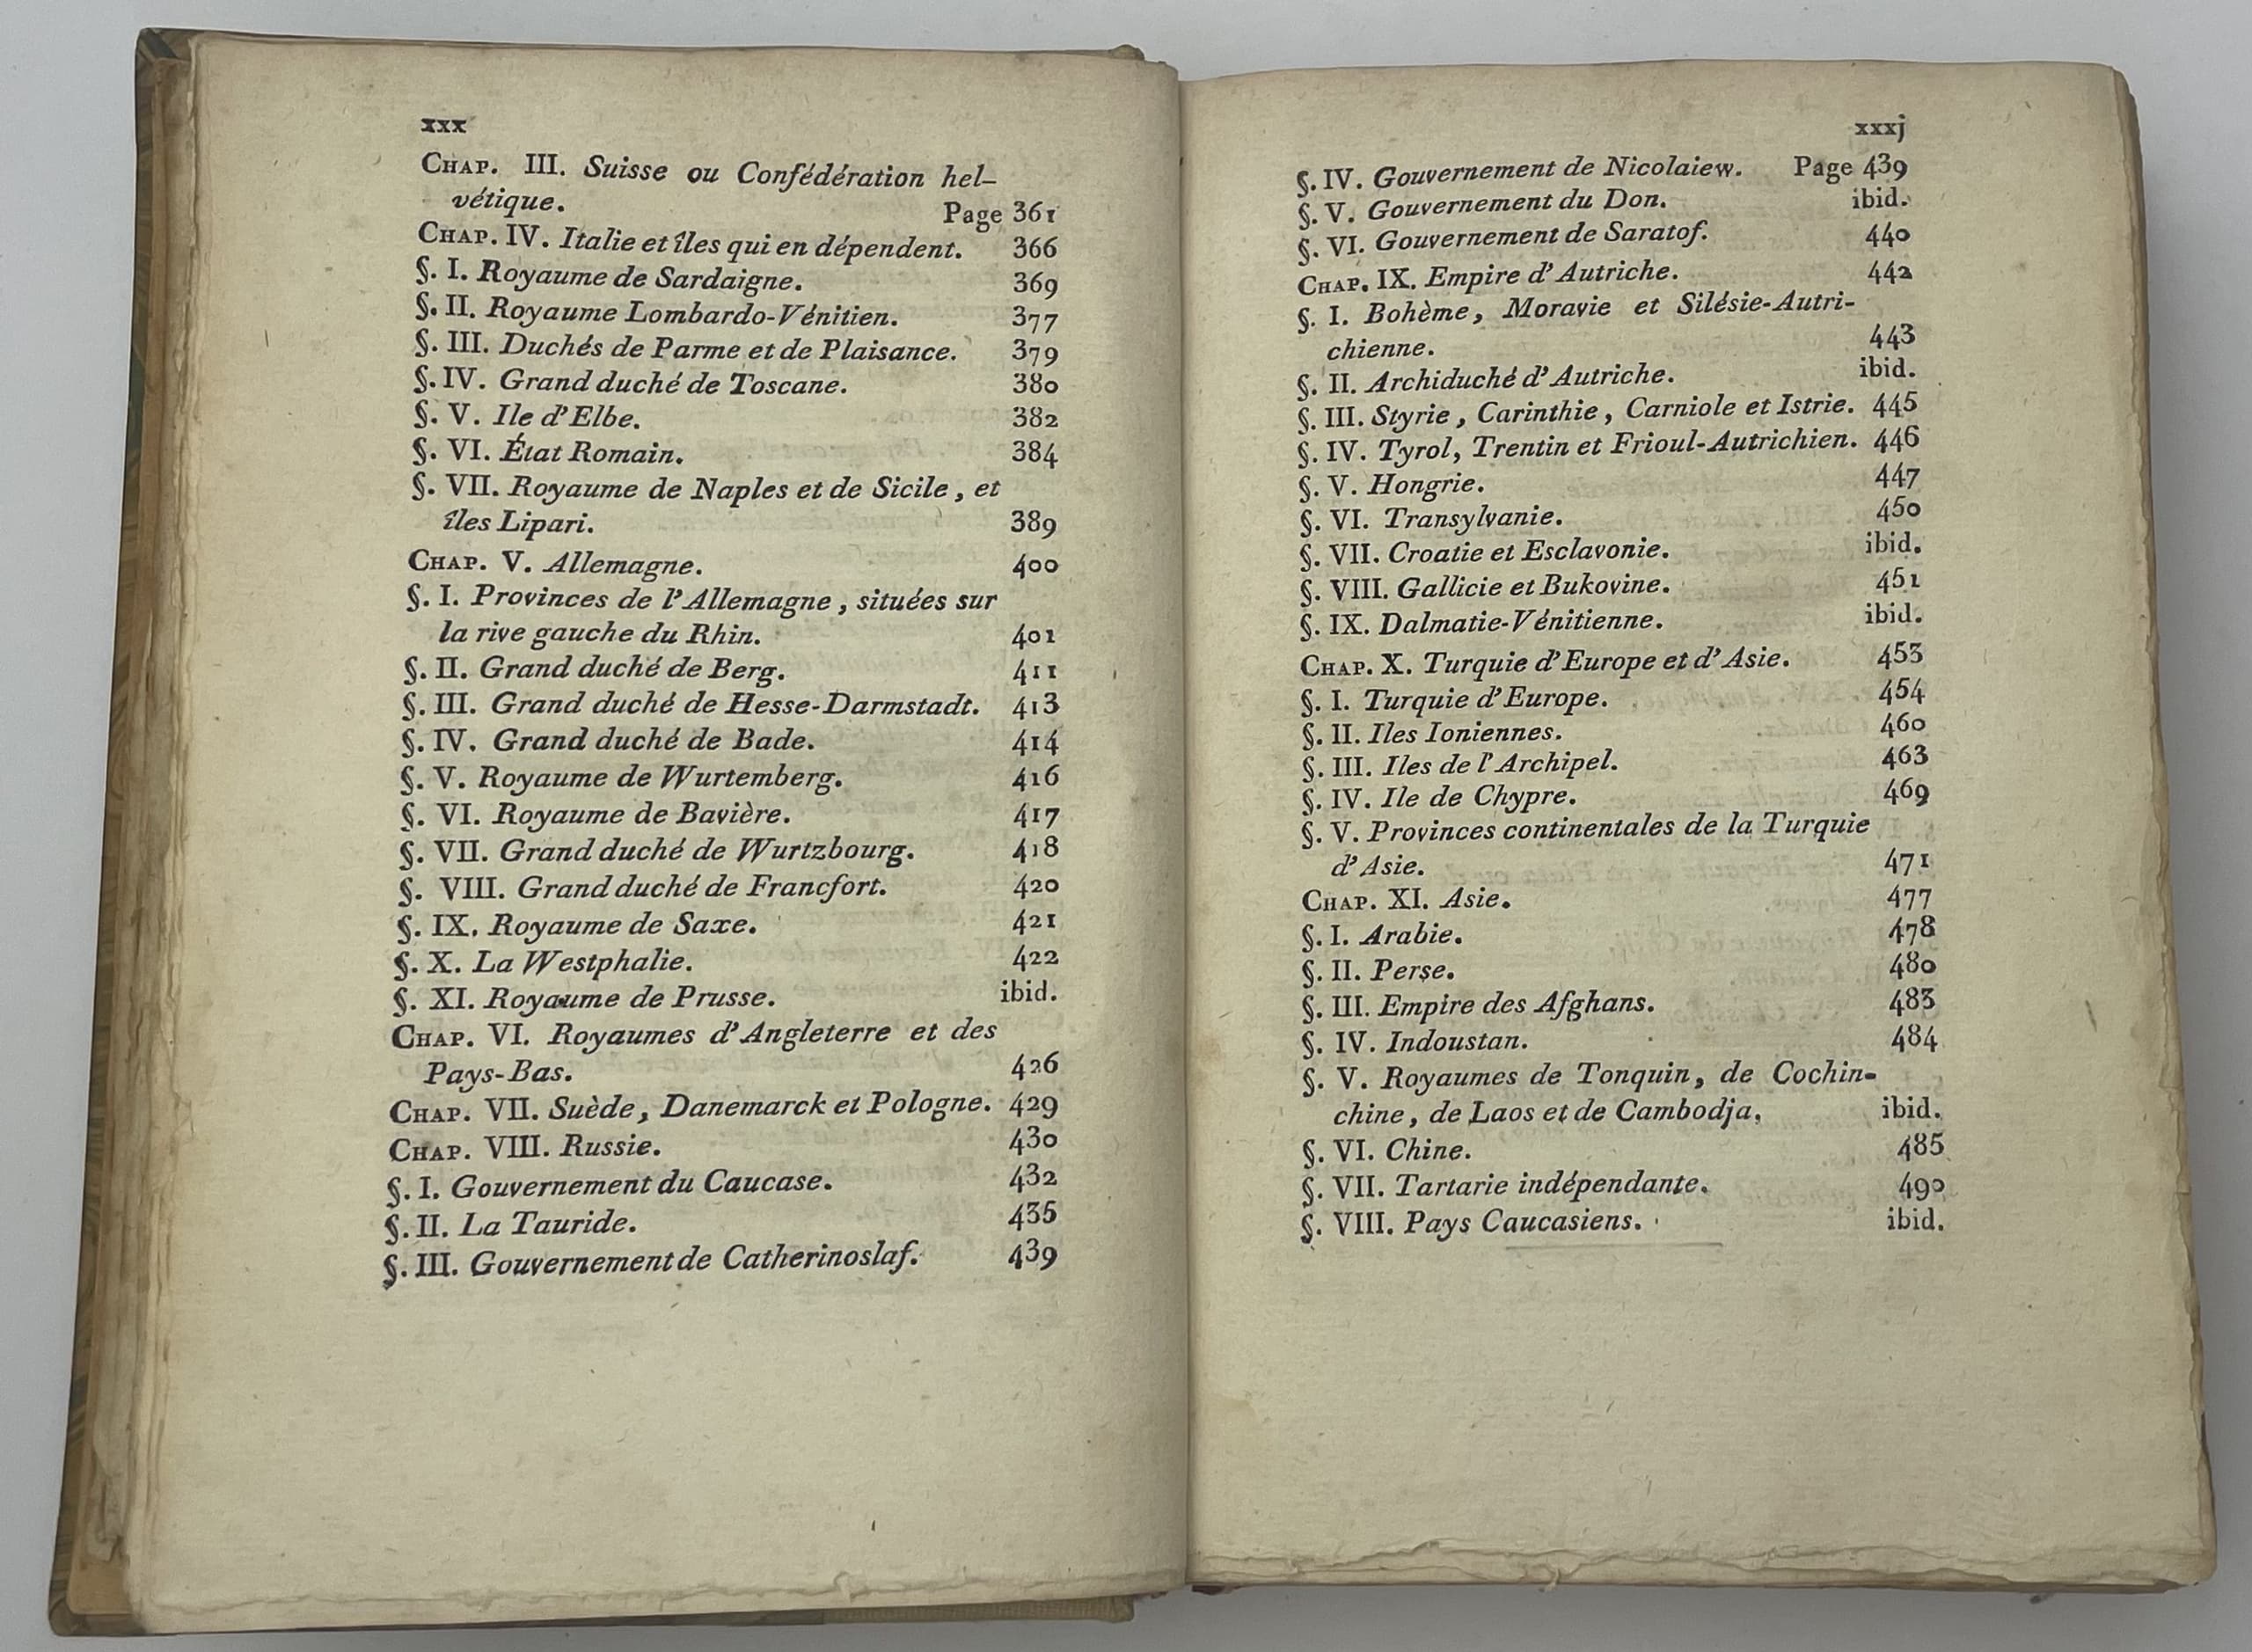 xxx
CHAP. III. Suisse ou Confédération hel-
vétique. Page 361
CHAP. IV. Italie et îles qui en dépendent. 366
§. I. Royaume de Sardaigne. 369
§. II. Royaume Lombardo-Vénitien. 377
§. III. Duchés de Parme et de Plaisance. 379
§. IV. Grand duché de Toscane. 380
§. V. Ile d'Elbe. 382
§. VI. État Romain. 384
§. VII. Royaume de Naples et de Sicile, et
îles Lipari. 389
CHAP. V. Allemagne. 400
§. I. Provinces de l'Allemagne, situées sur
la rive gauche du Rhin. 401
§. II. Grand duché de Berg. 411
§. III. Grand duché de Hesse-Darmstadt. 413
§. IV. Grand duché de Bade. 414
§. V. Royaume de Wurtemberg. 416
§. VI. Royaume de Bavière. 417
§. VII. Grand duché de Wurtzbourg. 418
§. VIII. Grand duché de Francfort. 420
§. IX. Royaume de Saxe. 421
§. X. La Westphalie. 422
§. XI. Royaume de Prusse. ibid.
CHAP. VI. Royaumes d'Angleterre et des
Pays-Bas. 426
CHAP. VII. Suède, Danemarck et Pologne. 429
CHAP. VIII. Russie. 430
§. I. Gouvernement du Caucase. 432
§. II. La Tauride. 435
§. III. Gouvernement de Catherinoslaf. 439
xxxj
§. IV. Gouvernement de Nicolaiew. Page 439
§. V. Gouvernement du Don. ibid.
§. VI. Gouvernement de Saratof. 440
CHAP. IX. Empire d'Autriche. 442
§. I. Bohème, Moravie et Silésie-Autri-
chienne. 443
§. II. Archiduché d'Autriche. ibid.
§. III. Styrie, Carinthie, Carniole et Istrie. 445
§. IV. Tyrol, Trentin et Frioul-Autrichien. 446
§. V. Hongrie. 447
§. VI. Transylvanie. 450
§. VII. Croatie et Esclavonie. ibid.
§. VIII. Gallicie et Bukovine. 451
§. IX. Dalmatie-Vénitienne. ibid.
CHAP. X. Turquie d'Europe et d'Asie. 453
§. I. Turquie d'Europe. 454
§. II. Iles Ioniennes. 460
§. III. Iles de l'Archipel. 463
§. IV. Ile de Chypre. 469
§. V. Provinces continentales de la Turquie
d'Asie. 471
CHAP. XI. Asie. 477
§. I. Arabie. 478
§. II. Perse. 480
§. III. Empire des Afghans. 483
§. IV. Indoustan. 484
§. V. Royaumes de Tonquin, de Cochin-
chine, de Laos et de Cambodja. ibid.
§. VI. Chine. 485
§. VII. Tartarie indépendante. 490
§. VIII. Pays Caucasiens. ibid.